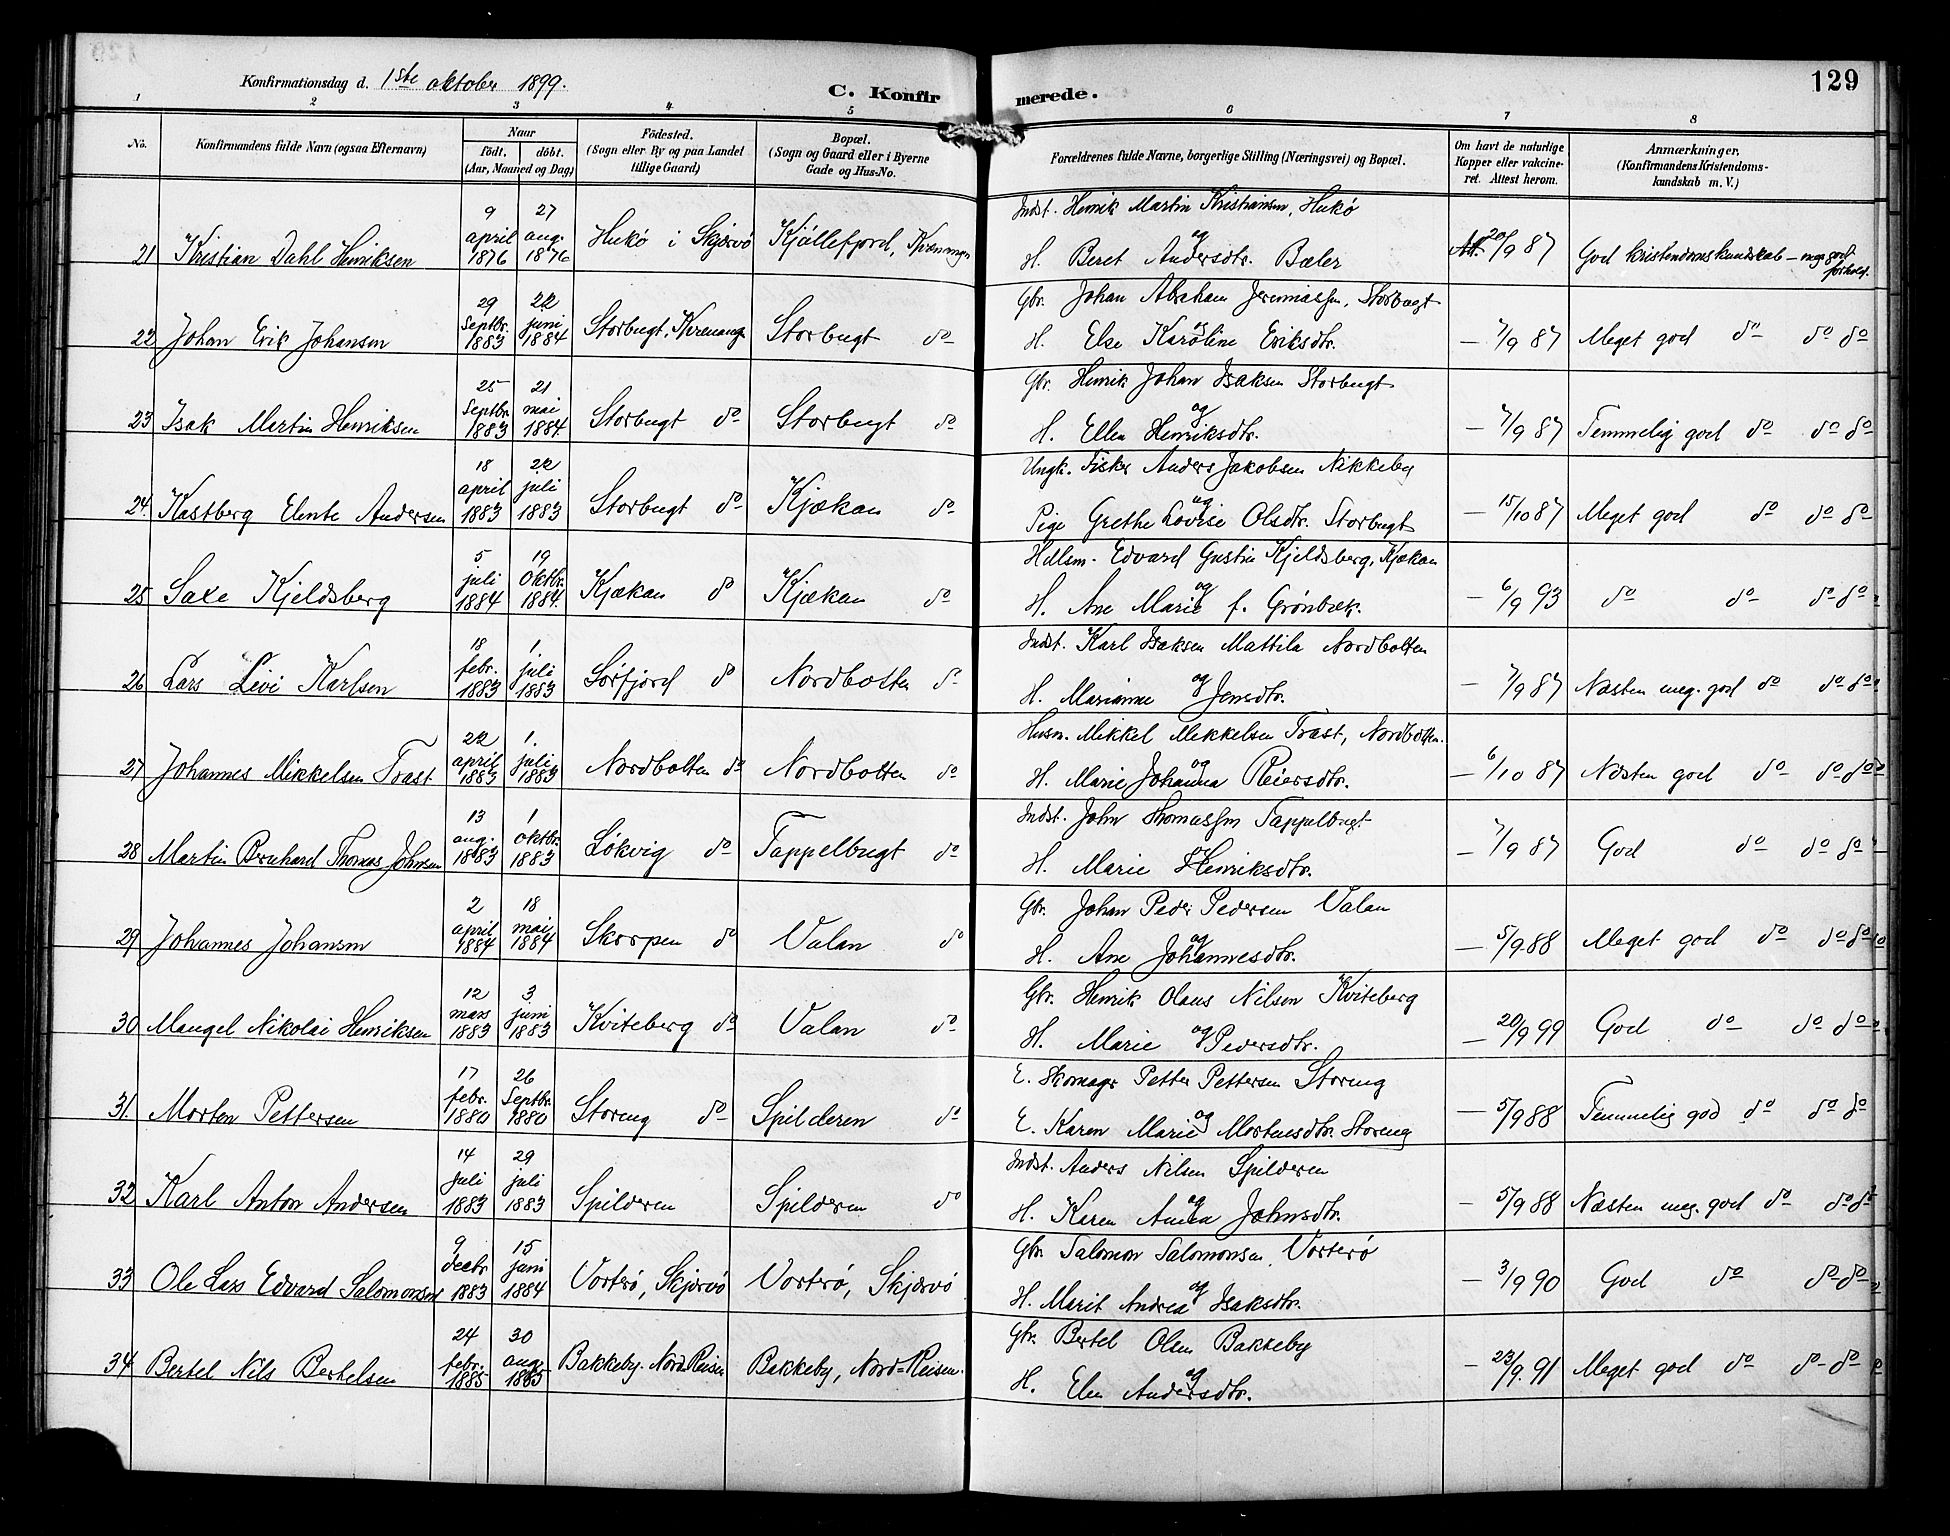 129
Konfirmationsdag d. 1ste oktober 1899.
C. Konfirmerede.
1 2 3 4 5 6 7 8
No. Konfirmandens fulde Navn (ogsaa Efternavn) Naar födt, döbt. (Aar, Maaned og Dag) Födested. (Sogn eller By og paa Landet tillige Gaard) Bopæl. (Sogn og Gaard eller i Byerne Gade og Hus-No. Forældrenes fulde Navne, borgerlige Stilling (Næringsvei) og Bopæl. Om havt de naturlige Kopper eller vakcineret. Attest herom. Anmærkninger, (Konfirmandens Kristendomskundskab m. V.)
21 Kristian Dahl Henriksen 9 april 1876 27 aug. 1876 Hukö i Skjærvö Kjöllefjord, Kvænangen Indst. Henrik Martin Kristiansen, Hukö og H. Beret Andersdtr. Bæler Att. 20/9 87 God kristendomskundskab – meg. god forhold.
22 Johan Erik Johansen 29 Septbr. 1883 22 juni 1884 Storbugt, Kvænang. Storbugt do Gbr. Johan Abraham Jeremiassen, Storbugt og H. Else Karoline Eriksdtr. – 7/9 87 Meget god do do do
23 Isak Martin Henriksen 25 Septbr. 1883 21 mai 1884. Storbugt do Storbugt do Gbr. Henrik Johan Isaksen Storbugt og H. Ellen Henriksdtr. – 7/9 87 Temmelig god do do do
24. Kastberg Elente Andersen 18 april 1883 22 juli 1883 Storbugt do Kjækan do Ungk. Fisker Anders Jakobsen Nikkeby og Pige Grethe Lovise Olsdtr. Storbugt – 15/10 87 Meget god do do do
25 Saxe Kjeldsberg 5 juli 1884 19 Oktbr. 1884. Kjækan do Kjækan do Hdlsm. Edvard Gustin Kjeldsberg, Kjækan og H. Ane Marie f. Grönbæk. – 6/9 93 do do do do
26 Lars Levi Karlsen 18 febr. 1883 1. juli 1883 Sörfjord do Nordbotten do Indst. Karl Isaksen Mattila Nordbotten og H. Marianne Jensdtr. – 7/9 87 Næsten meg. god do do do
27 Johannes Mikkelsen Trast 22 april 1883 1. juli 1883 Nordbotten do Nordbotten do Husm. Mikkel Mikkelsen Trast, Nordbotten. og H. Marie Johanna Reiersdtr. – 6/10 87 Næsten god do do do
28 Martin Bernhard Thomas Johnsen 13 aug. 1883 1 oktbr. 1883 Lökvig do Tappelbugt do Indst. John Thomassen Tappelbugt H. Marie Henriksdtr. – 7/9 87 God do do do
29 Johannes Johansen 2 april 1884 18 mai 1884 Skorpen do Valan do Gbr. Johan Peder Pedersen Valan og H. Ane Johannesdtr. – 5/9 88 Meget god do do do
30 Mangel Nikolai Henriksen 12 mars 1883 3 juni 1883 Kviteberg do Valan do Gbr. Henrik Olaus Nilsen Kviteberg og H. Marie Pedersdtr. – 20/9 99 God do do do
31. Morten Pettersen 17 febr. 1880 26 Septbr. 1880 Storeng do Spilderen do E. Skomager Petter Pettersen Storeng og E. Karen Marie Mortensdtr. Storeng – 5/9 88 Temmelig god do do do
32 Karl Anton Andersen 14 juli 1883 29 juli 1883 Spilderen Spilderen do Indst. Anders Nilsen Spilderen og H. Karen Anna Johnsdtr. – 5/9 88 Næsten meg. god do do do
33 Ole Lars Edvard Salomonsen 9 decbr 1883 15 juni 1884 Vorterö, Skjærvö Vorterö, Skjærvö Gbr. Salomon Salomonsen, Vorterö og H. Marit Andrea Isaksdtr. – 3/9 90 God do do do
34 Bertel Nils Bertelsen 24 febr. 1885 30 aug 1885 Bakkeby. Nord Reisen Bakkeby, Nord=Reisen. Gbr. Bertel Olsen Bakkeby og H. Elen Andersdtr. – 23/9. 91 Meget god do do do